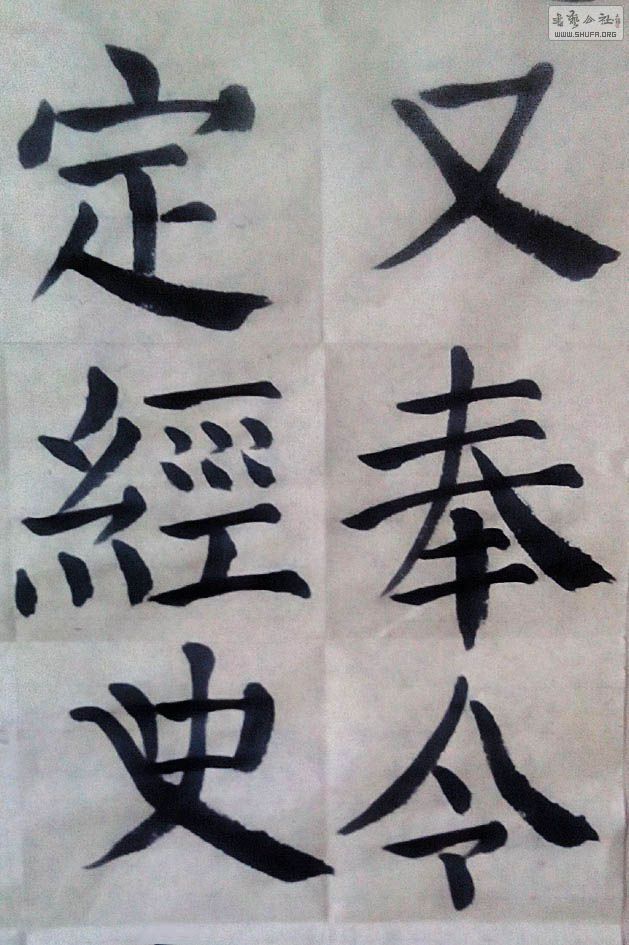 又奉令
定經史
书艺公社
WWW.SHUFA.ORG